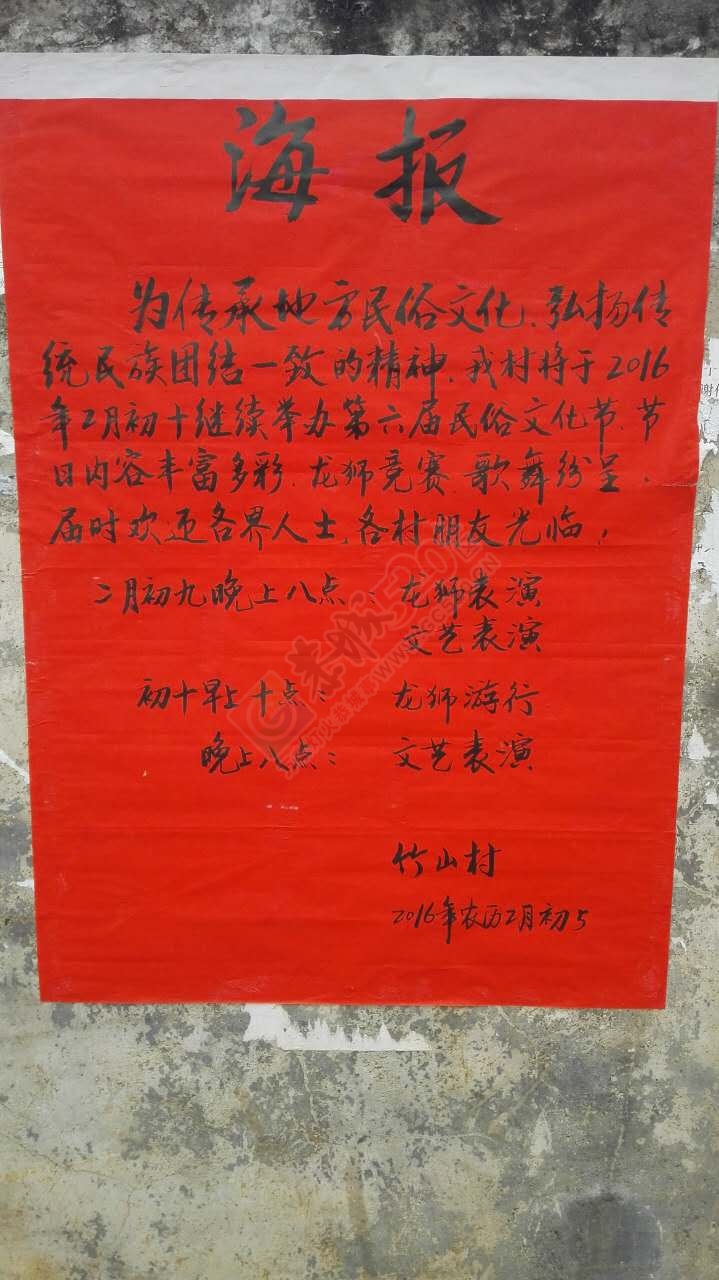 海报
为传承地方民俗文化、弘扬传
统民族团结一致的精神、我村将于2016
年2月初十继续举办第六届民俗文化节、节
日内容丰富多彩、龙狮竞赛、歌舞纷呈、
届时欢迎各界人士、各村朋友光临！
二月初九晚上八点：龙狮表演
文艺表演
初十早上十点：龙狮游行
晚上八点：文艺表演
竹山村
2016年农历2月初5